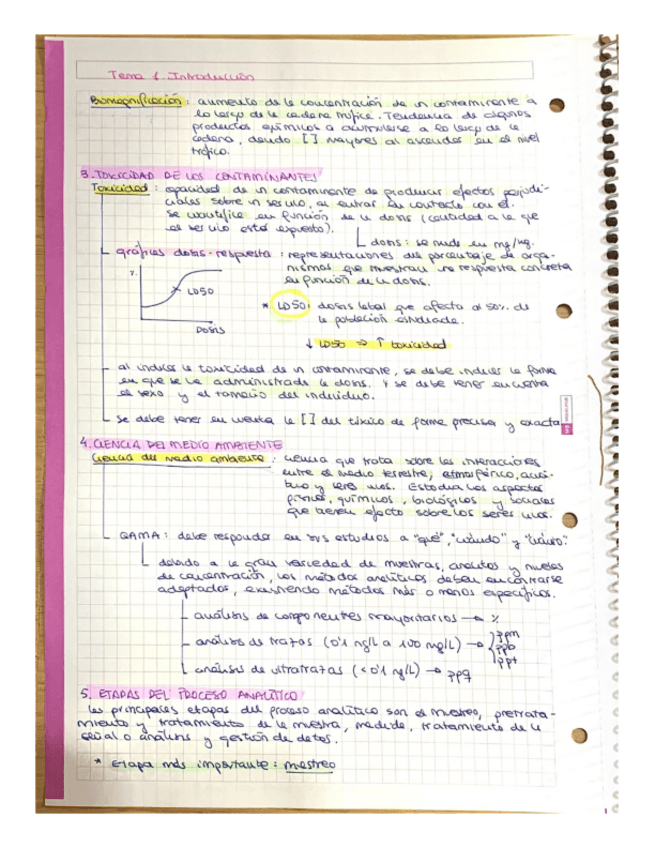 Tema 1. Introducción
Biomagnificación: aumento de la concentración de un contaminante a
lo largo de la cadena trófica. Tendencia de algunos
productos químicos a acumularse a lo largo de la
cadena, dando [ ] mayores al ascender en el nivel
trófico.
3. TOXICIDAD DE LOS CONTAMINANTES
Toxicidad: capacidad de un contaminante de producir efectos perjudi-
ciales sobre un ser vivo, al entrar en contacto con él.
Se cuantifica en función de la dosis (cantidad a la que
el ser vivo está expuesto).
dosis: se mide en mg/kg.
gráficas dosis-respuesta: representaciones del porcentaje de orga-
nismos que muestran una respuesta concreta
en función de la dosis.
%
LD50
DOSIS
* LD50: dosis letal que afecta al 50% de
la población estudiada.
↓ LD50 ⇒ ↑ toxicidad
al indicar la toxicidad de un contaminante, se debe indicar la forma
en que se ha administrado la dosis. Y se debe tener en cuenta
el sexo y el tamaño del individuo.
se debe tener en cuenta la [ ] del tóxico de forma precisa y exacta
4. CIENCIA DEL MEDIO AMBIENTE
Ciencia del medio ambiente: ciencia que trata sobre las interacciones
entre el medio terrestre, atmosférico, acuá-
tico y seres vivos. Estudia los aspectos
físicos, químicos, biológicos y sociales
que tienen efecto sobre los seres vivos.
QAMA: debe responder en sus estudios a "qué", "cuándo" y "cuánto".
debido a la gran variedad de muestras, analitos y niveles
de concentración, los métodos analíticos deben encontrarse
adaptados, existiendo métodos más o menos específicos.
análisis de componentes mayoritarios → %
análisis de trazas (0'1 ng/L a 100 mg/L) → ppm
ppb
ppt
análisis de ultratrazas (<0'1 ng/L) → ppq
5. ETAPAS DEL PROCESO ANALÍTICO
Las principales etapas del proceso analítico son el muestreo, pretrata-
miento y tratamiento de la muestra, medida, tratamiento de la
señal o análisis y gestión de datos.
* Etapa más importante: muestreo